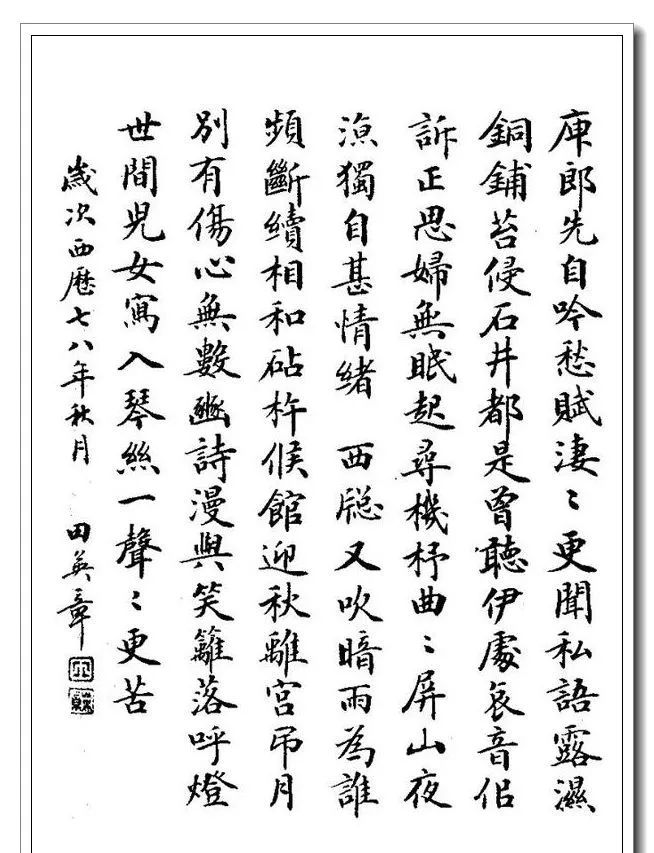 庾郎先自吟愁賦淒〻更聞私語露濕
銅鋪苔侵石井都是曾聽伊處哀音佀
訴正思婦無眠起尋機杼曲〻屏山夜
涼獨自甚情緒 西牕又吹暗雨為誰
頻斷續相和砧杵候館迎秋離宮吊月
別有傷心無數豳詩漫與笑籬落呼燈
世間兒女寫入琴絲一聲〻更苦
歲次西歷七八年秋月 田英章